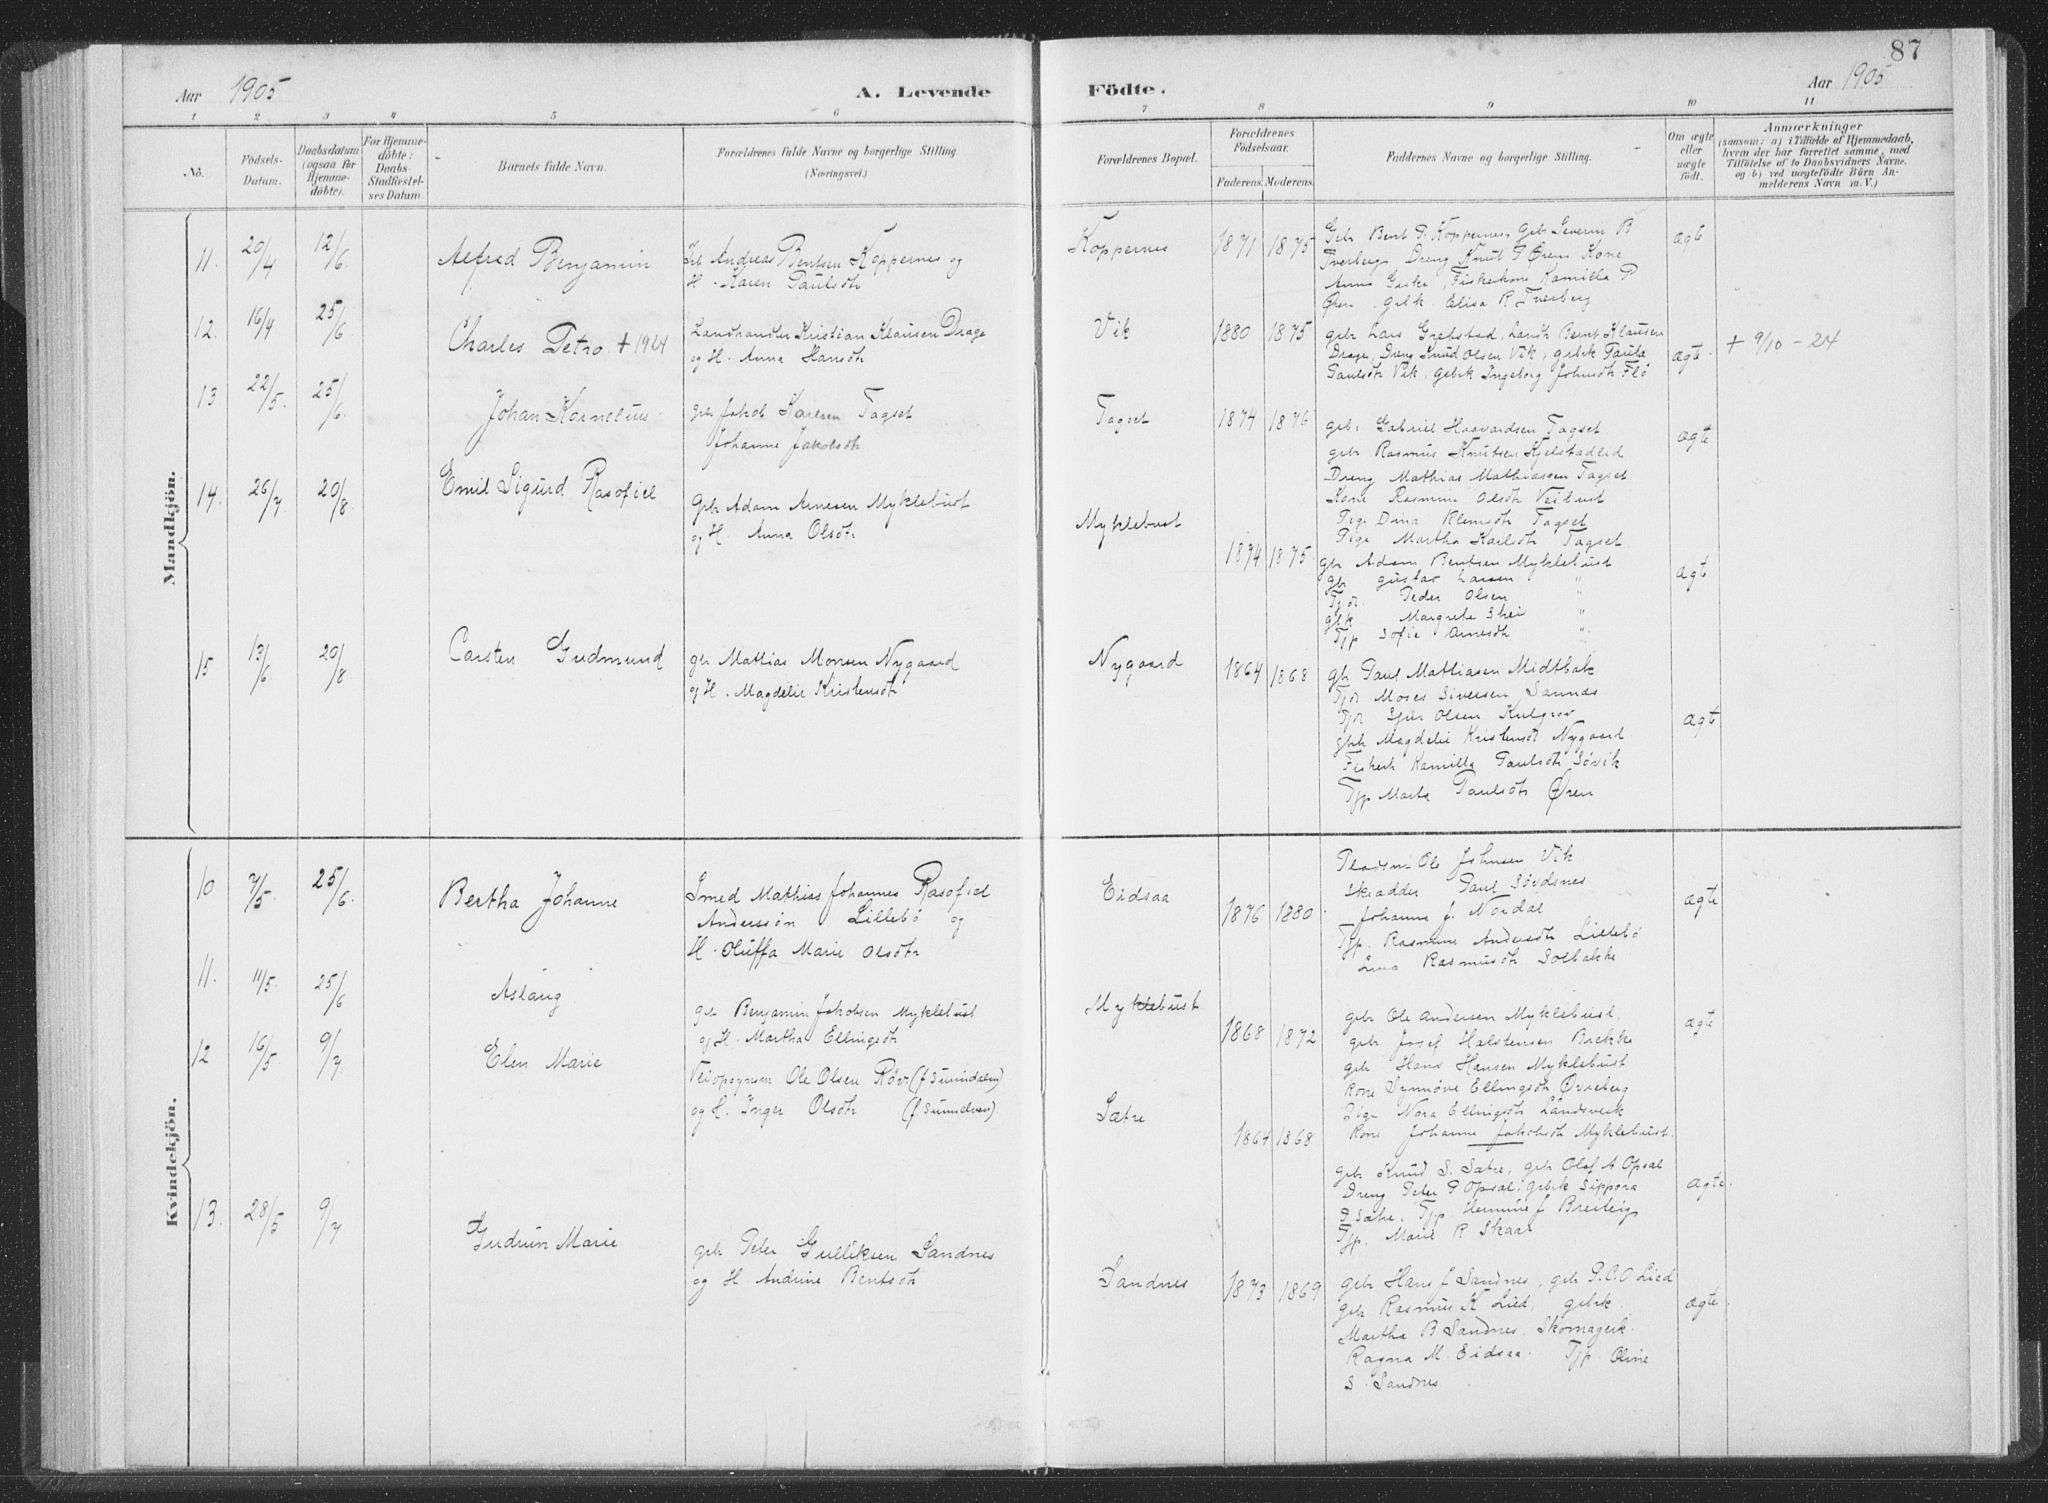 87
Aar 1905
A. Levende
Födte.
Aar 1905
1 2 3 4 5 6
7 8 9 10 11
No.
Födsels-
Datum.
Daabsdatum
(ogsaa for
Hjemme-
døbte).
For Hjemme-
döbte:
Daabs-
Stadfæstel-
ses Datum.
Barnets fulde Navn.
Forældrenes fulde Navne og borgerlige Stilling.
(Næringsvei.)
Forældrenes Bopæl.
Forældrenes
Födselsaar.
Faderens. Moderens.
Faddernes Navne og borgerlige Stilling.
Om ægte
eller
uægte
født.
Anmærkninger
(saasom: a) i Tilfælde af Hjemmedaab,
hvem der har forrettet samme, med
Tilföielse af to Daabsvidners Navne,
og b) ved uægtefødte Börn An-
melderens Navn m. V.)
Mandkjön.
11. 20/4 12/6 Alfred Benjamin
Andreas Bentsen Koppernes og
H. Karen Paulsdtr
Koppernes 1871 1875
Gbr. Bent P. Koppernes, gbr Severin B
Tverberg, Dreng Knut P Øren, Kone
Anne Giske, Fiskerkone Kamilla P
Øren, gebk. Elisa R Tverberg
ægte
12. 16/4 25/6 Charles Petro + 1924
Landhandler Kristian Klausen Drage
og H. Anna Hansdtr
Vik 1880 1875
gebr Lars Grebstad, Landh Bernt Klausen
Drage, Dreng Knud Olsen Vik, gebrk Paula
Paulsdtr Vik, gebrk Ingeborg Johnsdtr Flö
ægte
+ 9/10 - 24
13 22/5. 25/6. Johan Kornelius
gbr Jakob Karlsen Tagset
Johanne Jakobsdtr
Tagset 1874 1876
gebr Gabriel Haavardsen Tagset
gebr Rasmus Knutsen Kjelstadlid
Dreng Mathias Mathiassen Tagset
Kone Rasmine Olsdtr Veibust
Pige Dina Klemsdtr Tagset
Pige Martha Karlsdtr Tagset
ægte
14. 26/7 20/8 Emil Sigurd Rasofiel
Gbr Adam Arnesen Myklebust
og H. Anna Olsdtr
Myklebust 1874 1875.
gbr Adam Bentsen Myklebust
gbr Gustav Larsen "
Tj.dr. Peder Olsen "
gbk Margrete Shei "
Tjp Sofie Arnesdtr "
ægte
15 13/6 20/8 Carsten Gudmund
gbr Mattias Monsen Nygaard
og H. Magdelie Kristensdtr
Nygaard 1864 1868
gbr Paul Mattiasen Midtbak
Tjdr. Moses Siversen Sannes
Tjdr Sjur Olsen
gbrk Magdelie Kristensdt Nygaard
Fiskerk Kamilla Paulsdtr Søvik
Tjp Marta Paulsdtr Øren
ægte
Kvindekjön.
10 7/5. 25/6. Bertha Johanne
Smed Mathias Johannes Rasofiel
Anderssön Lillebö og
H. Oluffa Marie Olsdtr
Eidsaa 1876 1880
Pladsm Ole Johnsen Vik
Skrædder Paul Sövdsnes
Johanne J. Nordal
Tjp. Rasmine Andersdtr Lillebö
Lina Rasmusdtr Solbakke
ægte
11. 11/5. 25/6 Aslaug
gbr Benjamin Jakobsen Myklebust
og H. Martha Ellingsdtr
Myklebust 1868 1872
gebr Ole Andersen Myklebust.
gebr Josef Halstensen Brekke
gebr Hans Hansen Myklebust
Kone Synnöve Ellingsdtr Øvreberg
Pige Nora Ellingsdtr Landsverk
Kone Johanne Jakobsdtr Myklebust.
ægte
12 16/5 9/7 Elen Marie
Veiopsynsm Ole Olsen Röv (f Surendalen)
og H. Inger Olsdtr (f Sunnelven)
Sætre 1864 1868
gebr Knud S. Sætre, gebr Olaf A Opsal
Dreng Peter P Opsal, gebrk Sippora
P Sætre. Tjp. Hermine J Breiteig
Tjp. Marie R Skaar
ægte.
13. 28/5 9/7 Gudrun Marie
gebr Peter Gulliksen Sandnes
og H. Andrine Bentsdtr
Sandnes 1873 1869
gebr Hans J Sandnes, gebr P.C.O Lied
gbr Rasmus K Lied, gebrk
Martha B Sandnes. Skomagerk.
Ragna M. Eidsaa. Tjp. Oline
S. Sandnes
ægte